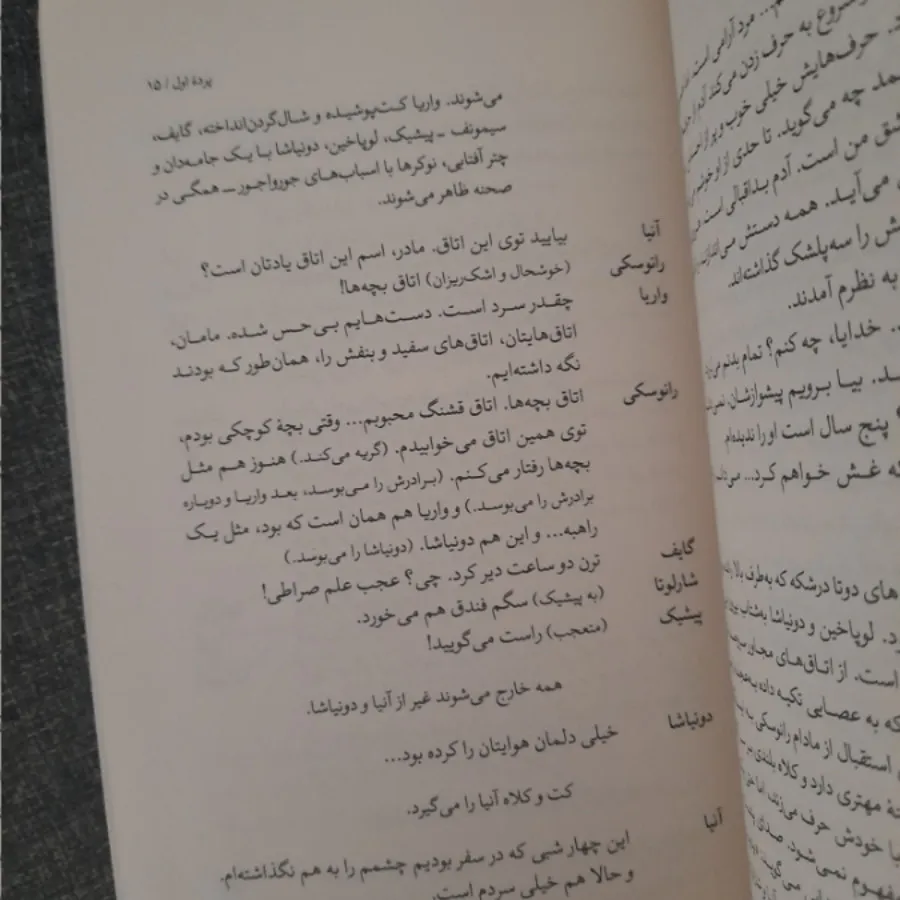 پردهٔ اول / ۱۵
می‌شوند. واریا کت‌پوشیده و شال‌گردن‌انداخته، گایف،
سیمونف ــ پیشیک، لوپاخین، دونیاشا با یک جامه‌دان و
چتر آفتابی، نوکرها با اسباب‌های جورواجور ــ همگی در
صحنه ظاهر می‌شوند.
آنیا بیایید توی این اتاق. مادر، اسم این اتاق یادتان است؟
رانوسکی (خوشحال و اشک‌ریزان) اتاق بچه‌ها!
واریا چقدر سرد است. دست‌هایم بی‌حس شده. مامان،
اتاق‌هایتان، اتاق‌های سفید و بنفش را، همان‌طور که بودند
نگه داشته‌ایم.
رانوسکی اتاق بچه‌ها. اتاق قشنگ محبوبم... وقتی بچهٔ کوچکی بودم،
توی همین اتاق می‌خوابیدم. (گریه می‌کند.) هنوز هم مثل
بچه‌ها رفتار می‌کنم. (برادرش را می‌بوسد، بعد واریا و دوباره
برادرش را می‌بوسد.) و واریا هم همان است که بود، مثل یک
راهبه... و این هم دونیاشا. (دونیاشا را می‌بوسد.)
گایف ترن دو ساعت دیر کرد. چی؟ عجب علم صراطی!
شارلوتا (به پیشیک) سگم فندق هم می‌خورد.
پیشیک (متعجب) راست می‌گویید!
همه خارج می‌شوند غیر از آنیا و دونیاشا.
دونیاشا خیلی دلمان هوایتان را کرده بود...
کت و کلاه آنیا را می‌گیرد.
آنیا این چهار شبی که در سفر بودیم چشمم را به هم نگذاشته‌ام.
و حالا هم خیلی سردم است.
مرد آرامی است،
شروع به حرف زدن می‌کند آدم از
حرف‌هایش خیلی خوب و پر از
چه می‌گوید. تا حدی از او خوشم
من است. آدم بداقبالی است.
می‌آید. همه دستش می‌اندازند
را سه‌پلشک گذاشته‌اند.
به نظرم آمدند.
خدایا، چه کنم؟ تمام بدنم
بیا برویم پیشوازشان.
پنج سال است او را ندیده‌ام
غش خواهم کرد...
های دوتا درشکه که به‌طرف بالا
لوپاخین و دونیاشا به‌شتاب
است. از اتاق‌های مجاور
که به عصایی تکیه داده
استقبال از مادام رانوسکی به
مهتری دارد و کلاه بلندی
خودش حرف می‌زند، اما
نمی‌شود. صدای